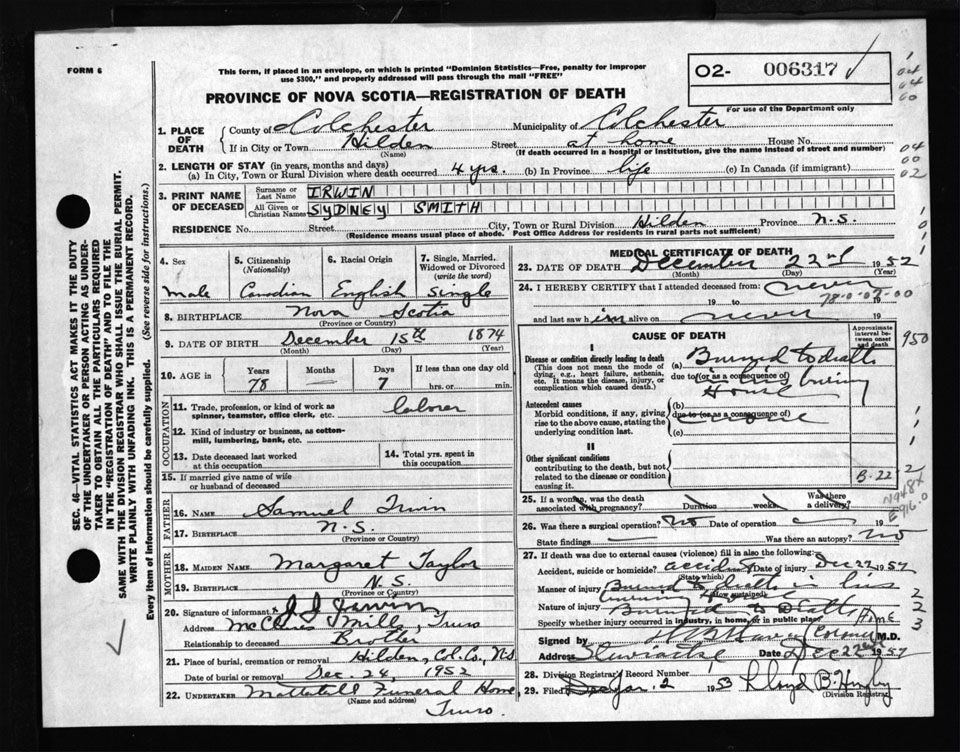 FORM 6
This form, if placed in an envelope, on which is printed "Dominion Statistics—Free, penalty for improper
use $300," and properly addressed will pass through the mail "FREE"
02- 006317
For use of the Department only
PROVINCE OF NOVA SCOTIA—REGISTRATION OF DEATH
1. PLACE OF DEATH { County of Colchester Municipality of Colchester
If in City or Town Hilden (Name) Street at home House No.
(If death occurred in a hospital or institution, give the name instead of street and number)
2. LENGTH OF STAY (in years, months and days)
(a) In City, Town or Rural Division where death occurred 4 yrs. (b) In Province life (c) In Canada (if immigrant)
3. PRINT NAME OF DECEASED { Surname or Last Name IRWIN
All Given or Christian Names SYDNEY SMITH
RESIDENCE No. Street City, Town or Rural Division Hilden Province N.S.
(Residence means usual place of abode. Post Office Address for residents in rural parts not sufficient)
4. Sex 5. Citizenship (Nationality) 6. Racial Origin 7. Single, Married, Widowed or Divorced (write the word)
Male Canadian English Single
8. BIRTHPLACE Nova Scotia
(Province or Country)
9. DATE OF BIRTH December 15th 1874
(Month) (Day) (Year)
10. AGE in { Years Months Days If less than one day old
78 — 7 hrs. or min.
OCCUPATION
11. Trade, profession, or kind of work as spinner, teamster, office clerk, etc. laborer
12. Kind of industry or business, as cotton-mill, lumbering, bank, etc.
13. Date deceased last worked at this occupation
14. Total yrs. spent in this occupation
15. If married give name of wife or husband of deceased
FATHER
16. NAME Samuel Irwin
17. BIRTHPLACE N.S.
(Province or Country)
MOTHER
18. MAIDEN NAME Margaret Taylor
19. BIRTHPLACE N.S.
(Province or Country)
20. Signature of informant
Address McClures Mills, Truro
Relationship to deceased Brother
21. Place of burial, cremation or removal Hilden, Col. Co., N.S
Date of burial or removal Dec. 24, 1952
22. UNDERTAKER Mattatall Funeral Home,
(Name and address)
Truro.
MEDICAL CERTIFICATE OF DEATH
23. DATE OF DEATH December 22nd 1952
(Month) (Day) (Year)
24. I HEREBY CERTIFY that I attended deceased from: never
19 to 19
78-0-07-00
and last saw him alive on never 19
CAUSE OF DEATH
Approximate interval between onset and death
I
Disease or condition directly leading to death
(This does not mean the mode of dying, e.g., heart failure, asthenia, etc. It means the disease, injury, or complication which caused death.)
(a) Burned to death
due to (or as a consequence of)
in his burning
House
Antecedent causes
Morbid conditions, if any, giving rise to the above cause, stating the underlying condition last.
(b)
due to (or as a consequence of)
(c)
II
Other significant conditions
contributing to the death, but not related to the disease or condition causing it.
B-22
25. If a woman, was the death associated with pregnancy? Duration weeks Was there a delivery?
26. Was there surgical operation? no Date of operation 19
State findings Was there an autopsy? no
27. If death was due to external causes (violence) fill in also the following:
Accident, suicide or homicide? accident Date of injury Dec 22 1952
(State which)
Manner of injury Burned to death in his
(How sustained)
Nature of injury Burned to Death
Specify whether injury occurred in industry, in home, or in public place Home
Signed by M.D.
Address Stewiacke Date Dec 22nd 1952
28. Division Registrar's Record Number
29. Filed Jan. 2 1953
(Division Registrar)
SEC. 46—VITAL STATISTICS ACT MAKES IT THE DUTY
OF THE UNDERTAKER OR PERSON ACTING AS UNDER-
TAKER TO OBTAIN ALL THE PARTICULARS REQUIRED
IN THE "REGISTRATION OF DEATH" AND TO FILE THE
SAME WITH THE DIVISION REGISTRAR WHO SHALL ISSUE THE BURIAL PERMIT.
WRITE PLAINLY WITH UNFADING INK. THIS IS A PERMANENT RECORD.
Every item of information should be carefully supplied. (See reverse side for instructions.)
950